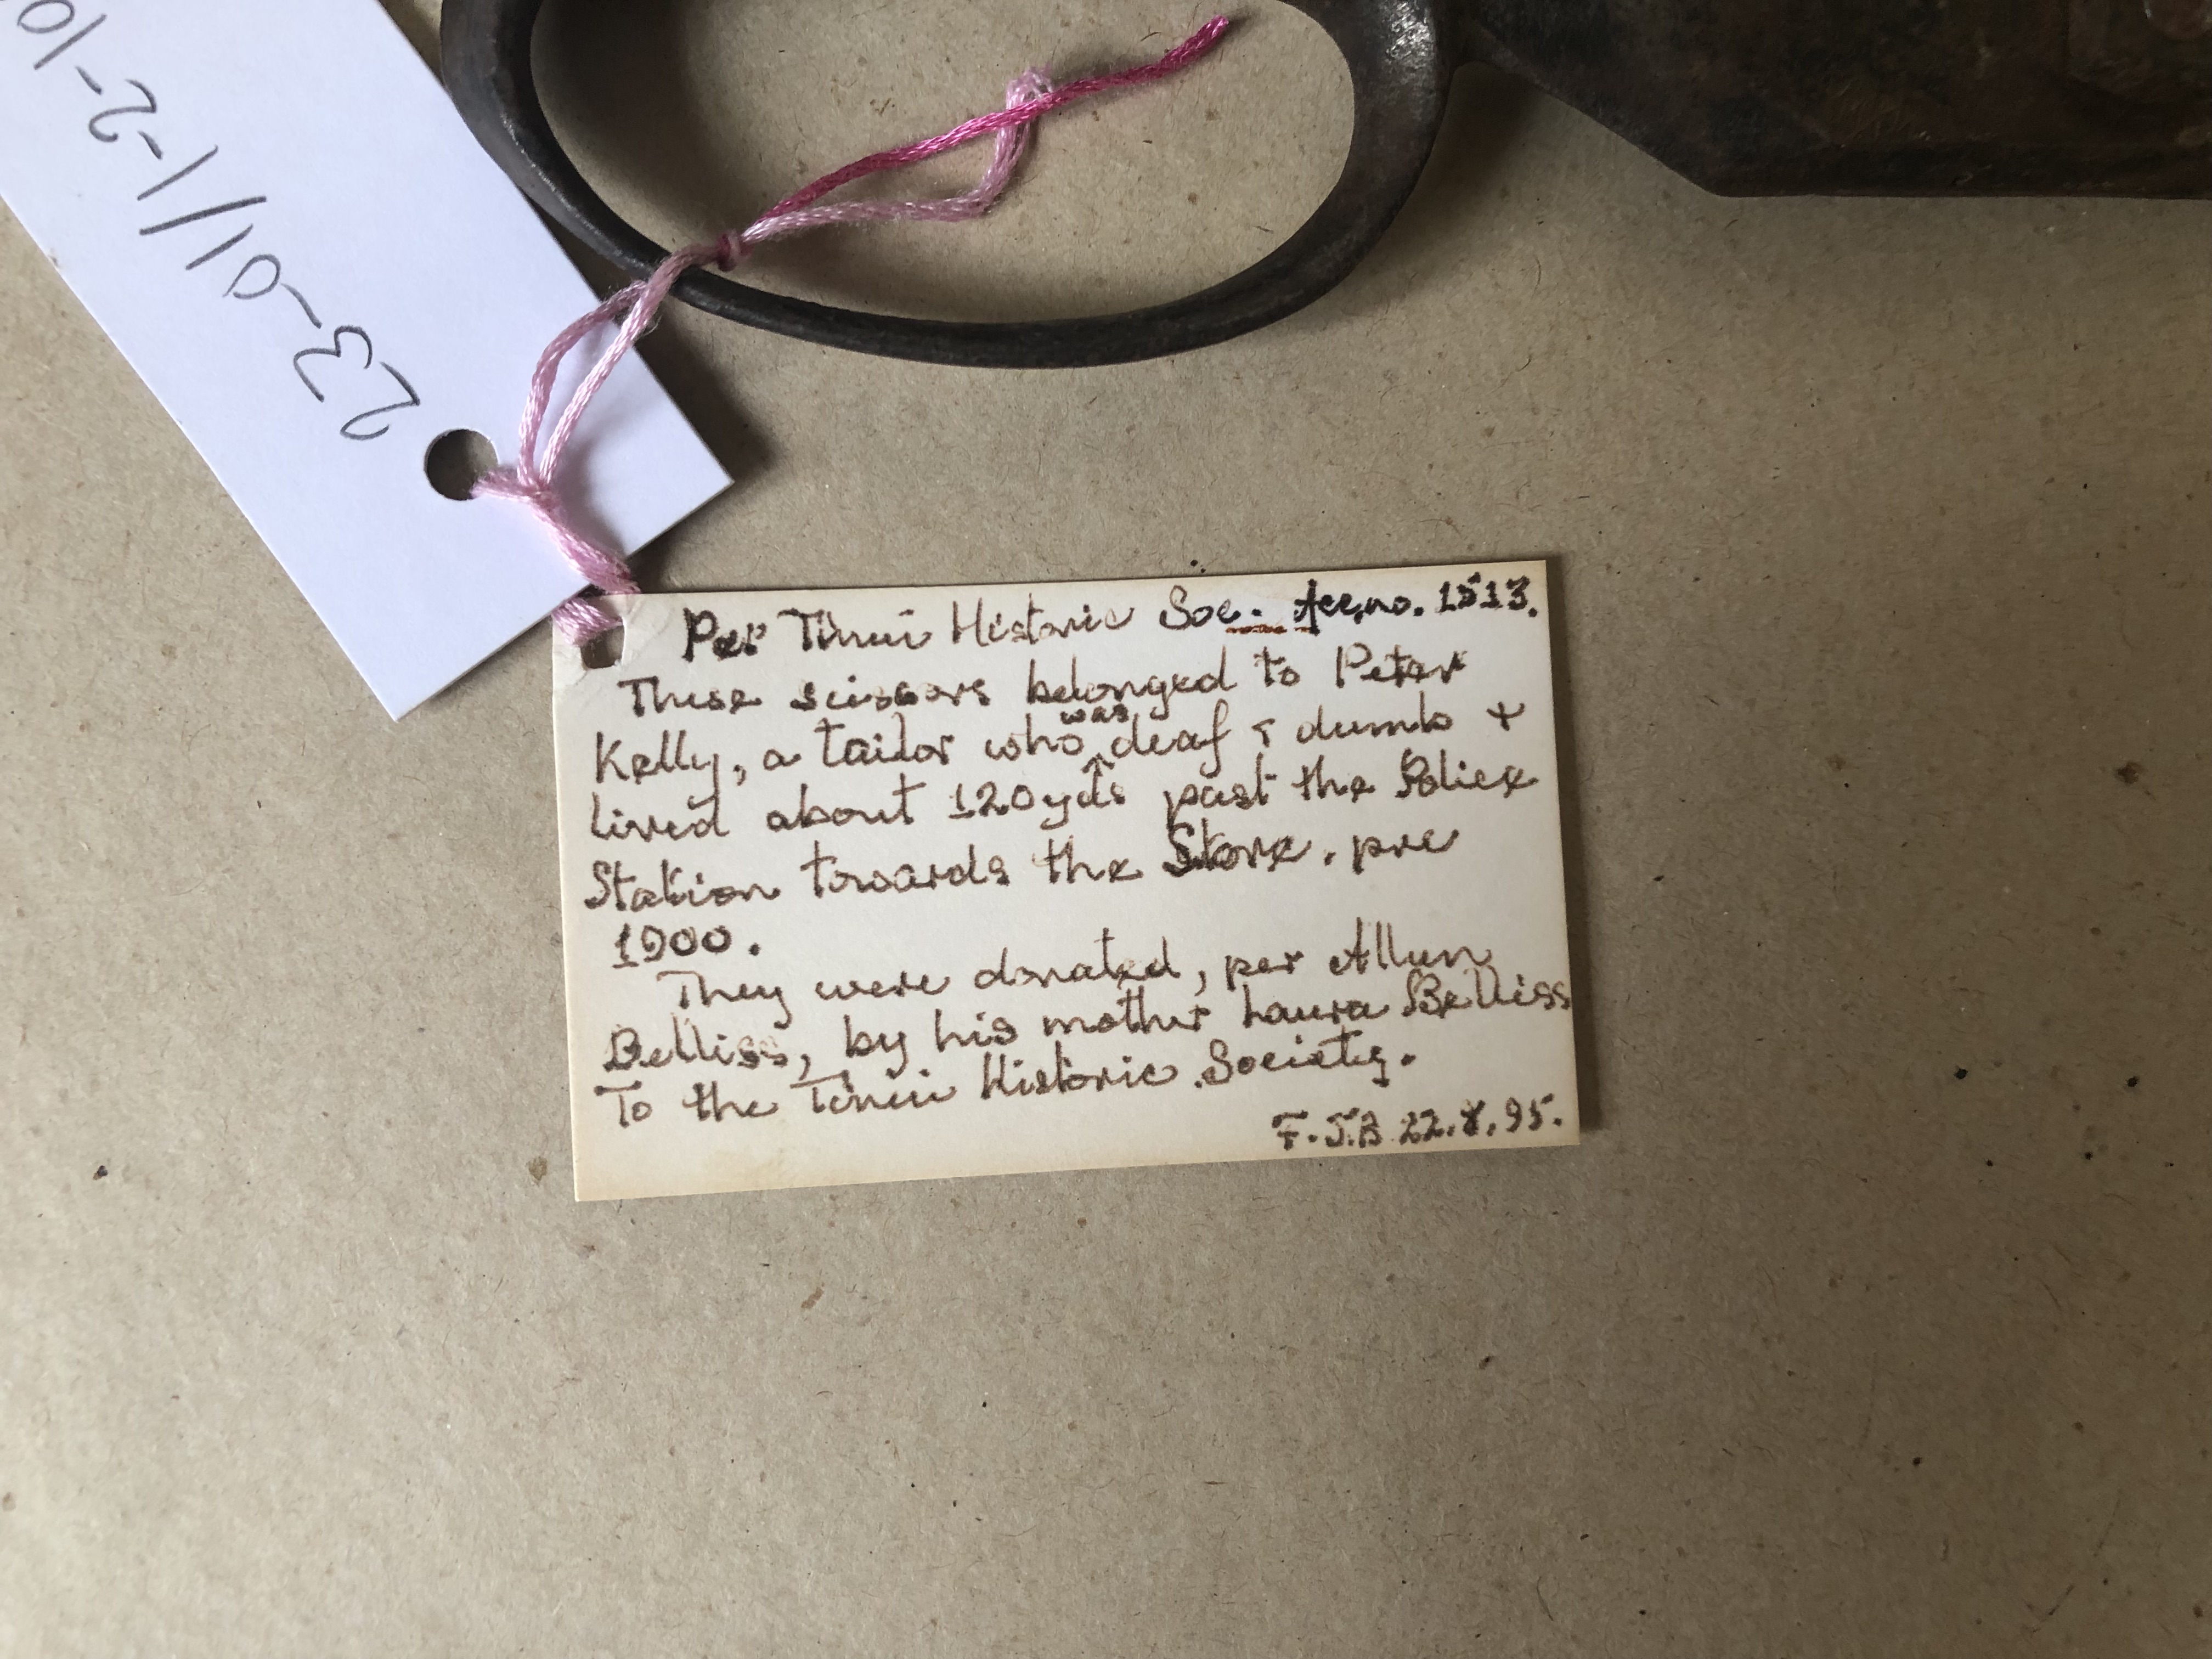 23-01/1-2-10
Per Tinui Historic Soc. Acqno. 1513.
These scissors belonged to Peter
Kelly, a tailor who was deaf & dumb +
lived about 120yds past the Police
Station towards the Store, pre
1900.
They were donated, per Allun
Belliss, by his mother Laura Belliss
To the Tinui Historic Society.
F.J.B 22.8.95.